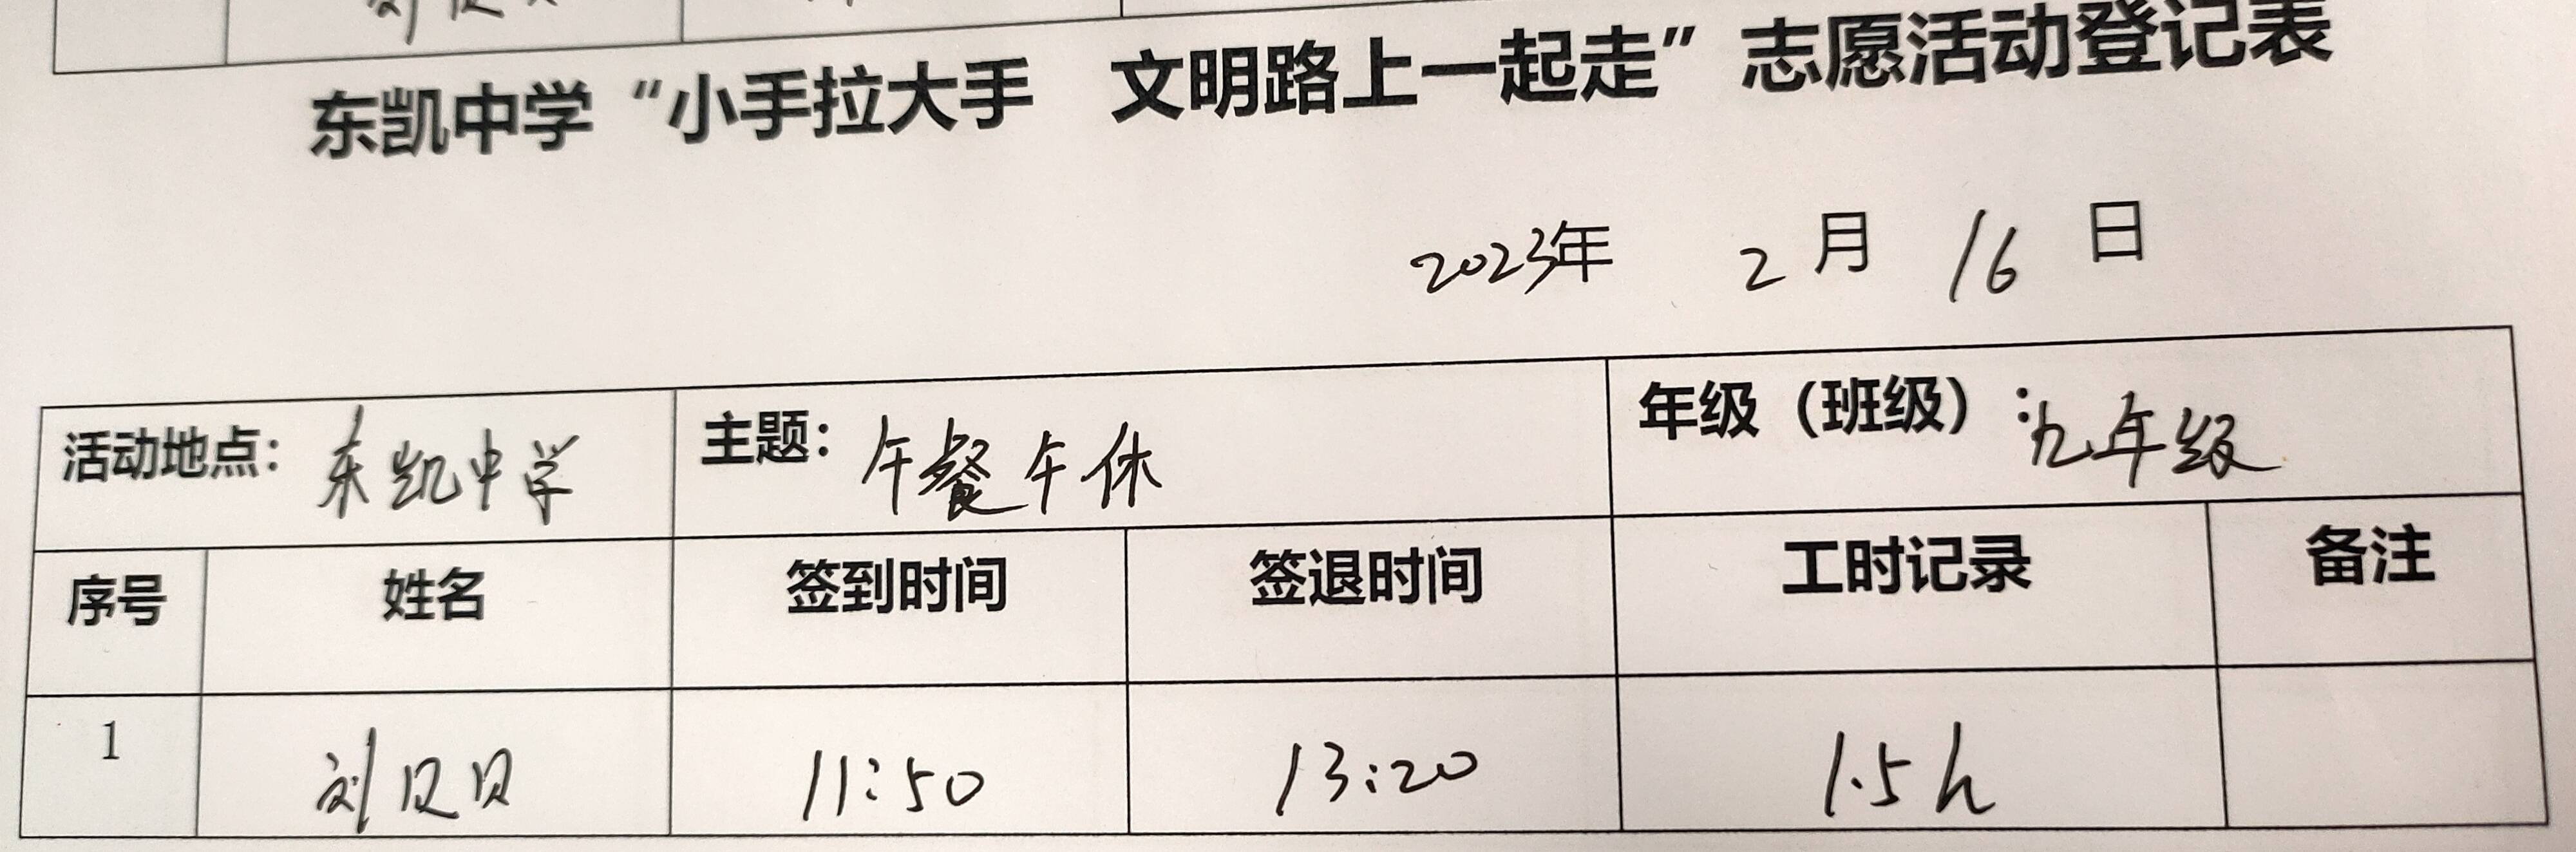 东凯中学“小手拉大手 文明路上一起走”志愿活动登记表
2023年 2月 16日
活动地点：东凯中学 主题：午餐午休 年级（班级）：九年级
序号 姓名 签到时间 签退时间 工时记录 备注
1 刘贝贝 11:50 13:20 1.5h